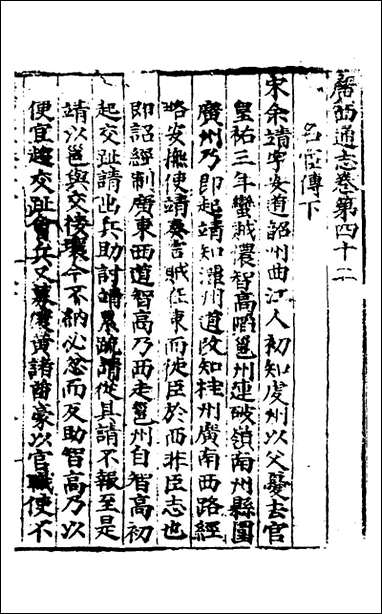 廣西通志卷第四十二
名臣傳下
宋余靖字安道韶州曲江人初知虔州以父憂去官
皇祐三年蠻越儂智高陷邕州連破嶺南州縣圍
廣州乃即起靖知潭州道改知桂州廣南西路經
略安撫使靖奏言賊在東而徙臣於西非臣志也
即詔經制廣東西道智高乃西走邕州自智高初
起交趾請出兵助討靖最疏請從其請不報至是
靖以邕與交接壤今不納必忿而反助智高乃以
便宜趨交趾會兵又募儂黃諸酋豪以官職使不